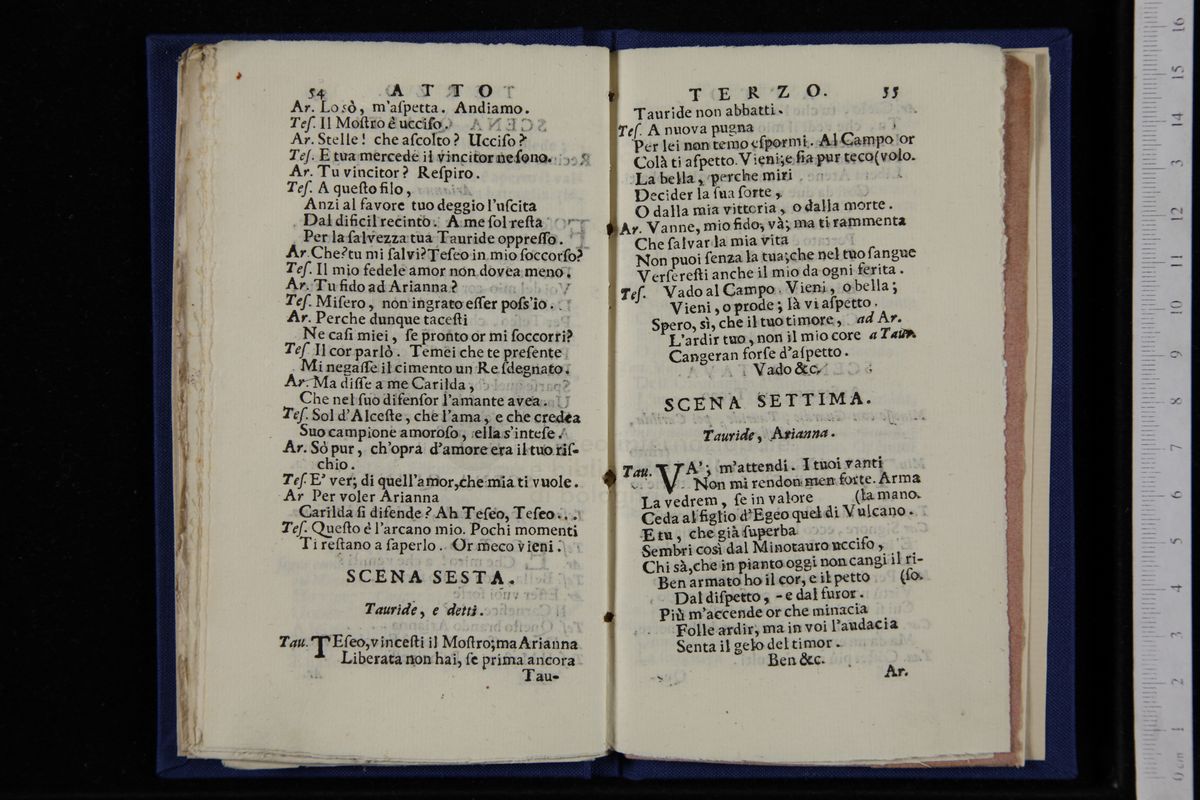 54 ATTO
Ar. Lo sò, m'aſpetta. Andiamo.
Teſ. Il Moſtro è ucciſo.
Ar. Stelle! che aſcolto? Ucciſo?
Teſ. E tua mercede il vincitor ne ſono.
Ar. Tu vincitor? Reſpiro.
Teſ. A queſto filo,
Anzi al favore tuo deggio l'uſcita
Dal dificil recinto. A me ſol reſta
Per la ſalvezza tua Tauride oppreſſo.
Ar Che? tu mi ſalvi? Teſeo in mio ſoccorſo?
Teſ. Il mio fedele amor non dovea meno.
Ar. Tu fido ad Arianna?
Teſ. Miſero, non ingrato eſſer poſs'io.
Ar. Perche dunque taceſti
Ne caſi miei, ſe pronto or mi ſoccorri?
Teſ Il cor parlò. Temei che te preſente
Mi negaſſe il cimento un Re ſdegnato.
Ar. Ma diſſe a me Carilda,
Che nel ſuo difenſor l'amante avea.
Teſ. Sol d'Alceſte, che l'ama, e che credea
Suo campione amoroſo, ella s'inteſe.
Ar. Sò pur, ch'opra d'amore era il tuo riſ-
chio.
Teſ. E' ver; di quell'amor, che mia ti vuole.
Ar Per voler Arianna
Carilda ſi difende? Ah Teſeo, Teſeo...
Teſ. Queſto è l'arcano mio. Pochi momenti
Ti reſtano a ſaperlo. Or meco vieni.
SCENA SESTA.
Tauride, e detti.
Tau. TEſeo, vinceſti il Moſtro; ma Arianna
Liberata non hai, ſe prima ancora
Tau-
TERZO. 55
Tauride non abbatti.
Teſ. A nuova pugna
Per lei non temo eſpormi. Al Campo or
Colà ti aſpetto. Vieni; e ſia pur teco (volo.
La bella, perche miri
Decider la ſua ſorte,
O dalla mia vittoria, o dalla morte.
Ar. Vanne, mio fido, và; ma ti rammenta
Che ſalvar la mia vita
Non puoi ſenza la tua; che nel tuo ſangue
Verſereſti anche il mio da ogni ferita.
Teſ. Vado al Campo. Vieni, o bella;
Vieni, o prode; là vi aſpetto.
Spero, sì, che il tuo timore, ad Ar.
L'ardir tuo, non il mio core a Taur.
Cangeran forſe d'aſpetto.
Vado &c.
SCENA SETTIMA.
Tauride, Arianna.
Tau. VA'; m'attendi. I tuoi vanti
Non mi rendon men forte. Arma
La vedrem, ſe in valore (la mano.
Ceda al figlio d'Egeo quel di Vulcano.
E tu, che già ſuperba
Sembri così dal Minotauro ucciſo,
Chi sà, che in pianto oggi non cangi il ri-
Ben armato ho il cor, e il petto (ſo.
Dal diſpetto, - e dal furor.
Più m'accende or che minacia
Folle ardir, ma in voi l'audacia
Senta il gelo del timor.
Ben &c.
Ar.